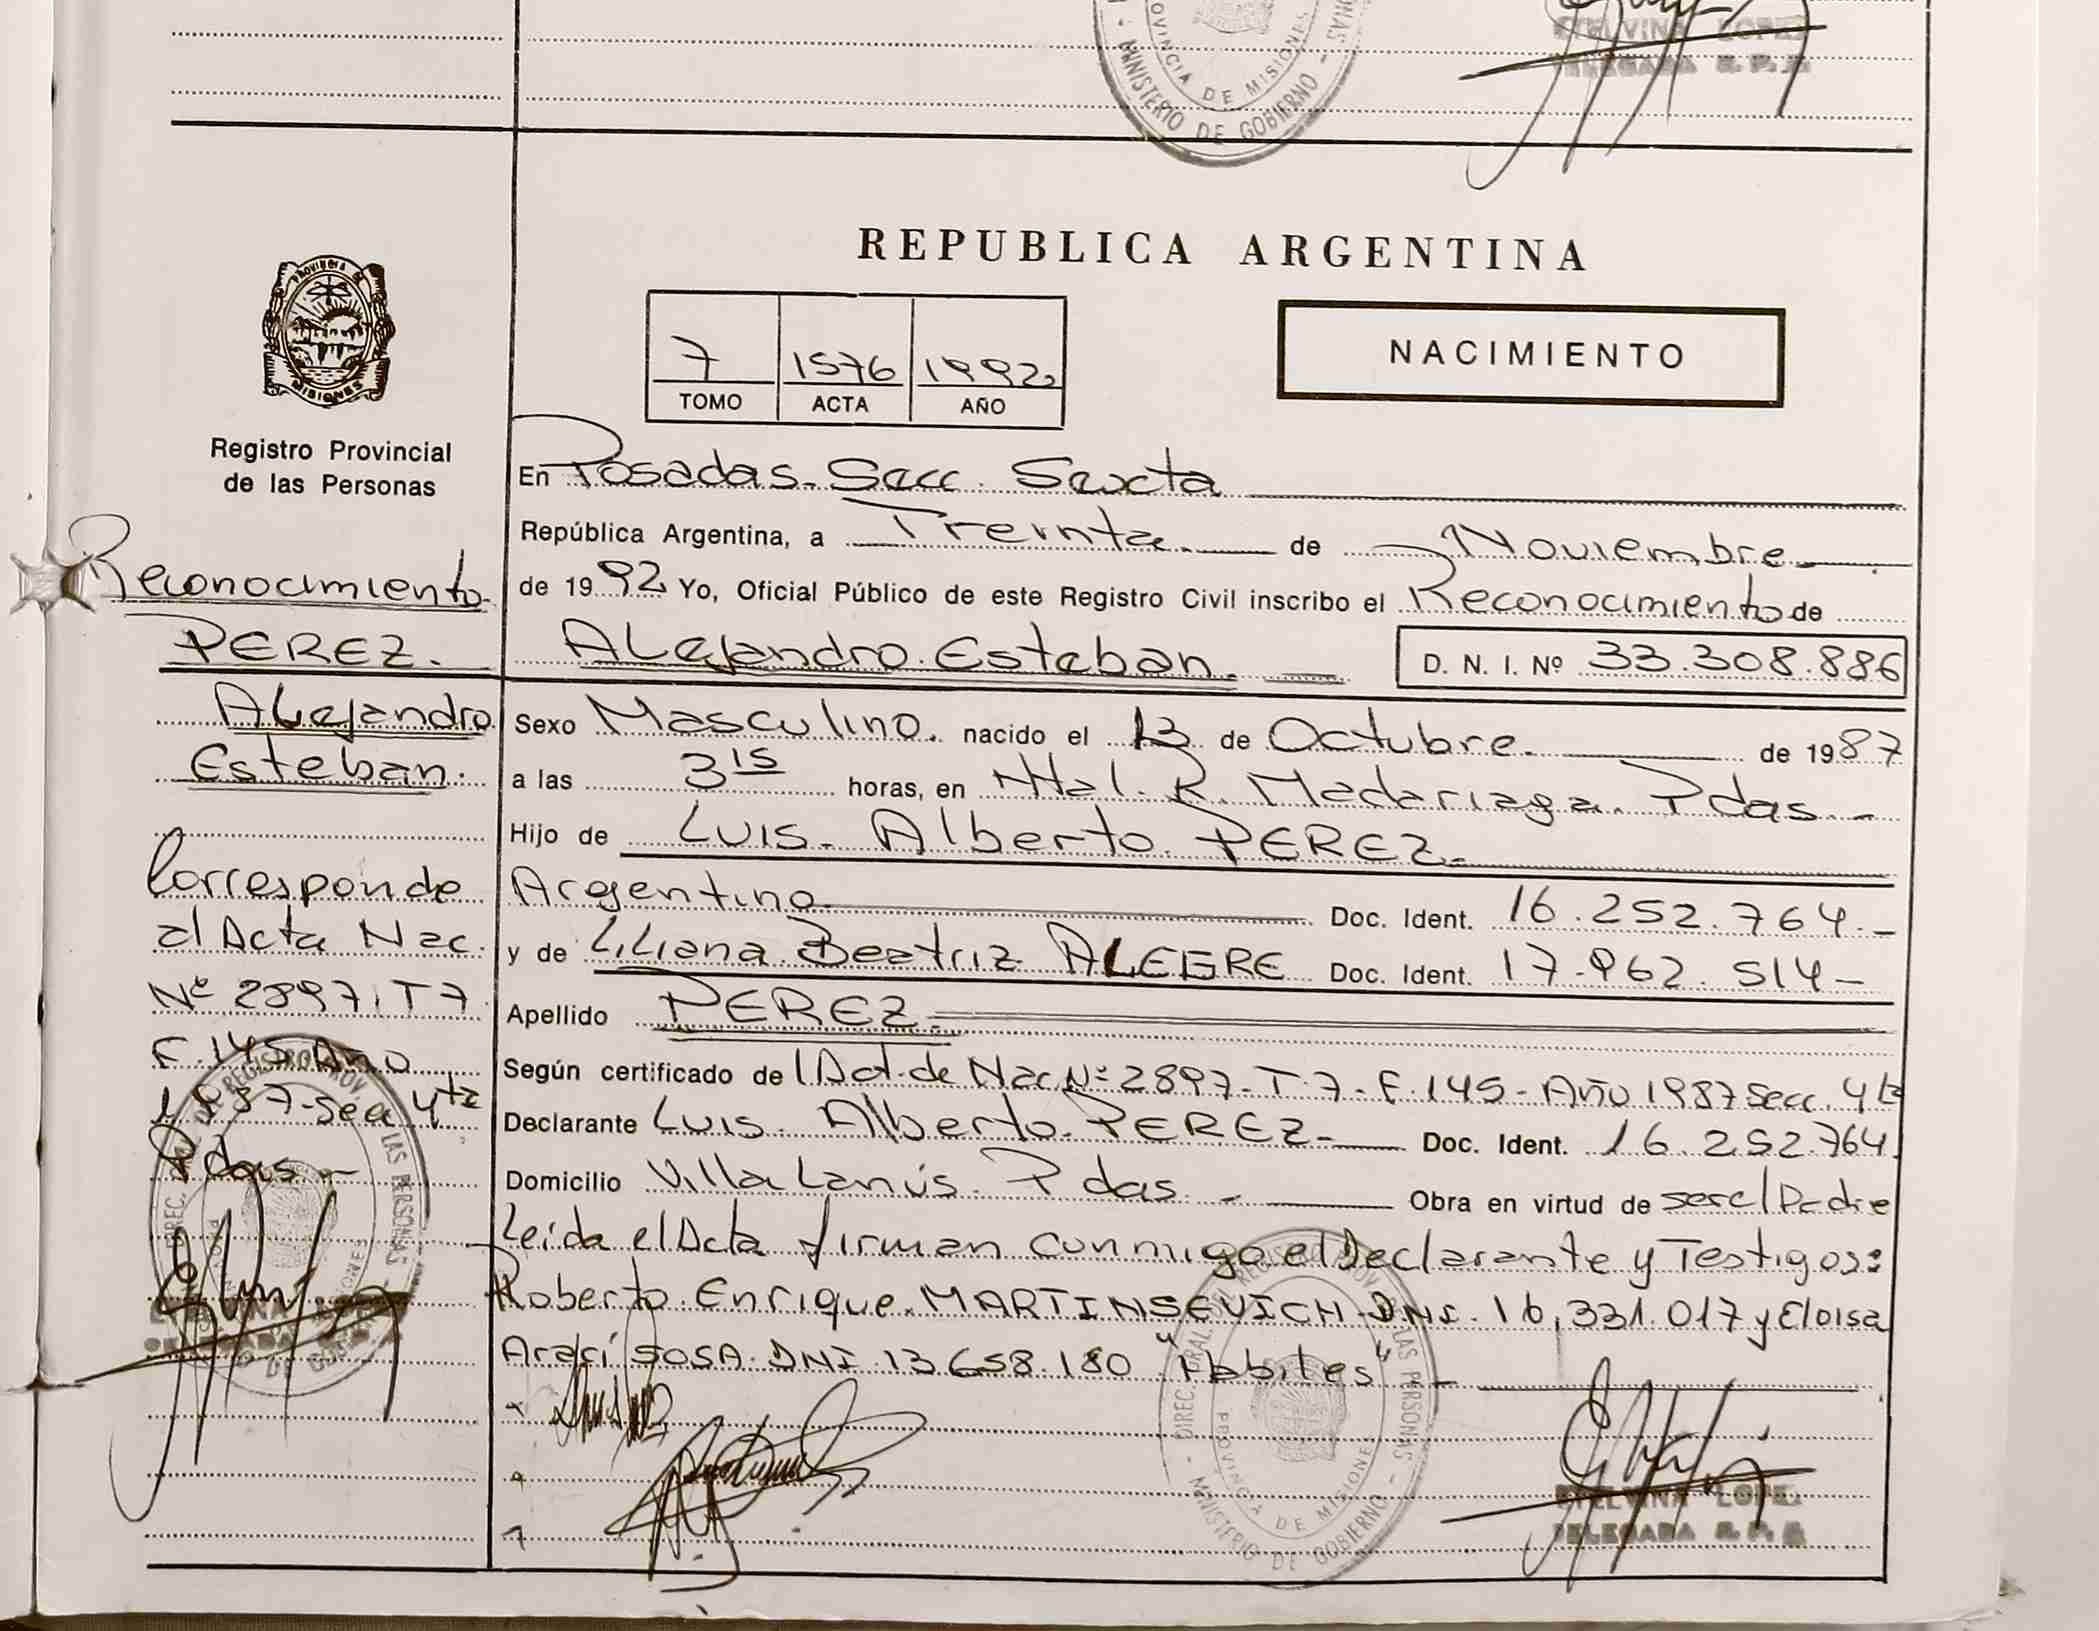 MINISTERIO DE GOBIERNO
PROVINCIA DE MISIONES
ETELVINA LOPEZ
DELEGADA R. P. P.
REPUBLICA ARGENTINA
PROVINCIA DE
MISIONES
7 1576 1992
TOMO ACTA AÑO
NACIMIENTO
Registro Provincial
de las Personas
Reconocimiento
PEREZ.
Alejandro
Esteban.
Corresponde
al Acta Nac.
Nº 2897. T 7
F. 145 Año
1987-Secc 4ta
Pdas -
En Posadas. Secc. Sexta
República Argentina, a Treinta. de Noviembre
de 1992 Yo, Oficial Público de este Registro Civil inscribo el Reconocimiento de
Alejandro Esteban. D. N. I. Nº 33.308.886
Sexo Masculino. nacido el 13 de Octubre. de 1987
a las 3 15 horas, en Htal. R. Madariaga. Pdas. -
Hijo de Luis. Alberto. PEREZ.
Argentino Doc. Ident. 16.252.764.-
y de Liliana Beatriz ALEGRE Doc. Ident. 17.962.514-
Apellido PEREZ.
Según certificado de Act. de Nac. Nº 2897- T. 7- F. 145- Año 1987 Secc. 4ta
Declarante Luis. Alberto. PEREZ- Doc. Ident. 16.252.764.
Domicilio Villa Lanús. Pdas. - Obra en virtud de ser el Padre
Leída el Acta firman conmigo el Declarante y Testigos:
Roberto Enrique MARTINSEVICH DNI. 16,331.017 y Eloisa
Arací SOSA. DNI 13.658.180 "Hábiles" -
DIREC. GRAL. DE REGISTRO PROV. DE LAS PERSONAS
PROVINCIA DE MISIONES
MINISTERIO DE GOBIERNO
ETELVINA LOPEZ
DELEGADA R. P. P.